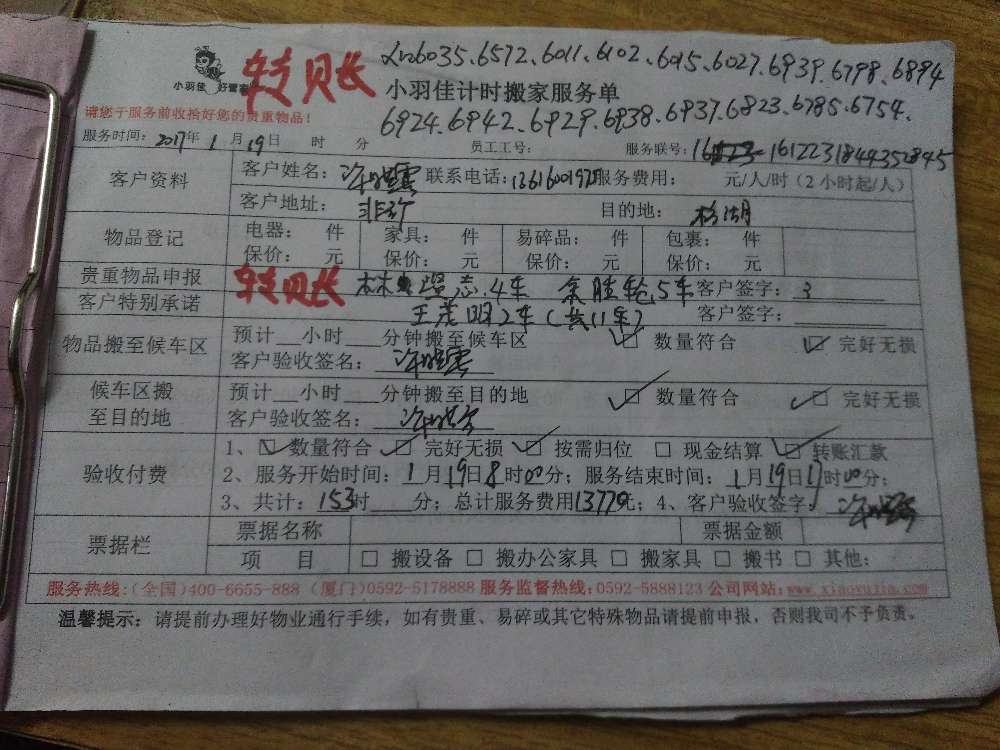 转账 6035、6572、6011、6102、6015、6027、6939、6798、6894
小羽佳 好管家 小羽佳计时搬家服务单
请您于服务前收拾好您的贵重物品! 6924、6942、6929、6938、6937、6823、6785、6754、
服务时间: 2017年 1月19日 时 分 员工工号: 服务联号: 1612231844352845
客户资料 客户姓名: 联系电话: 服务费用: 元/人/时(2小时起/人)
客户地址: 目的地: 杉湖
物品登记 电器: 件 家具: 件 易碎品: 件 包裹: 件
保价: 元 保价: 元 保价: 元 保价: 元
贵重物品申报 转账 4车 5车 客户签字: 3
客户特别承诺 2车(共11车) 客户签字:
物品搬至候车区 预计__小时___分钟搬至候车区 ☑ 数量符合 ☑ 完好无损
客户验收签名:
候车区搬 预计__小时___分钟搬至目的地 ☑ 数量符合 ☑ 完好无损
至目的地 客户验收签名:
验收付费 1、☑ 数量符合 ☑ 完好无损 ☑ 按需归位 □ 现金结算 ☑ 转账汇款
2、服务开始时间: 1月19日8时00分; 服务结束时间: 1月19日17时00分;
3、共计: 153时___分; 总计服务费用13770元; 4、客户验收签字:
票据栏 票据名称 票据金额
项 目 □ 搬设备 □ 搬办公家具 □ 搬家具 □ 搬书 □ 其他:
服务热线:(全国)400-6655-888 (厦门)0592-5178888 服务监督热线:0592-5888123 公司网站:www.xiaoyujia.com
温馨提示: 请提前办理好物业通行手续,如有贵重、易碎或其它特殊物品请提前申报,否则我司不予负责。